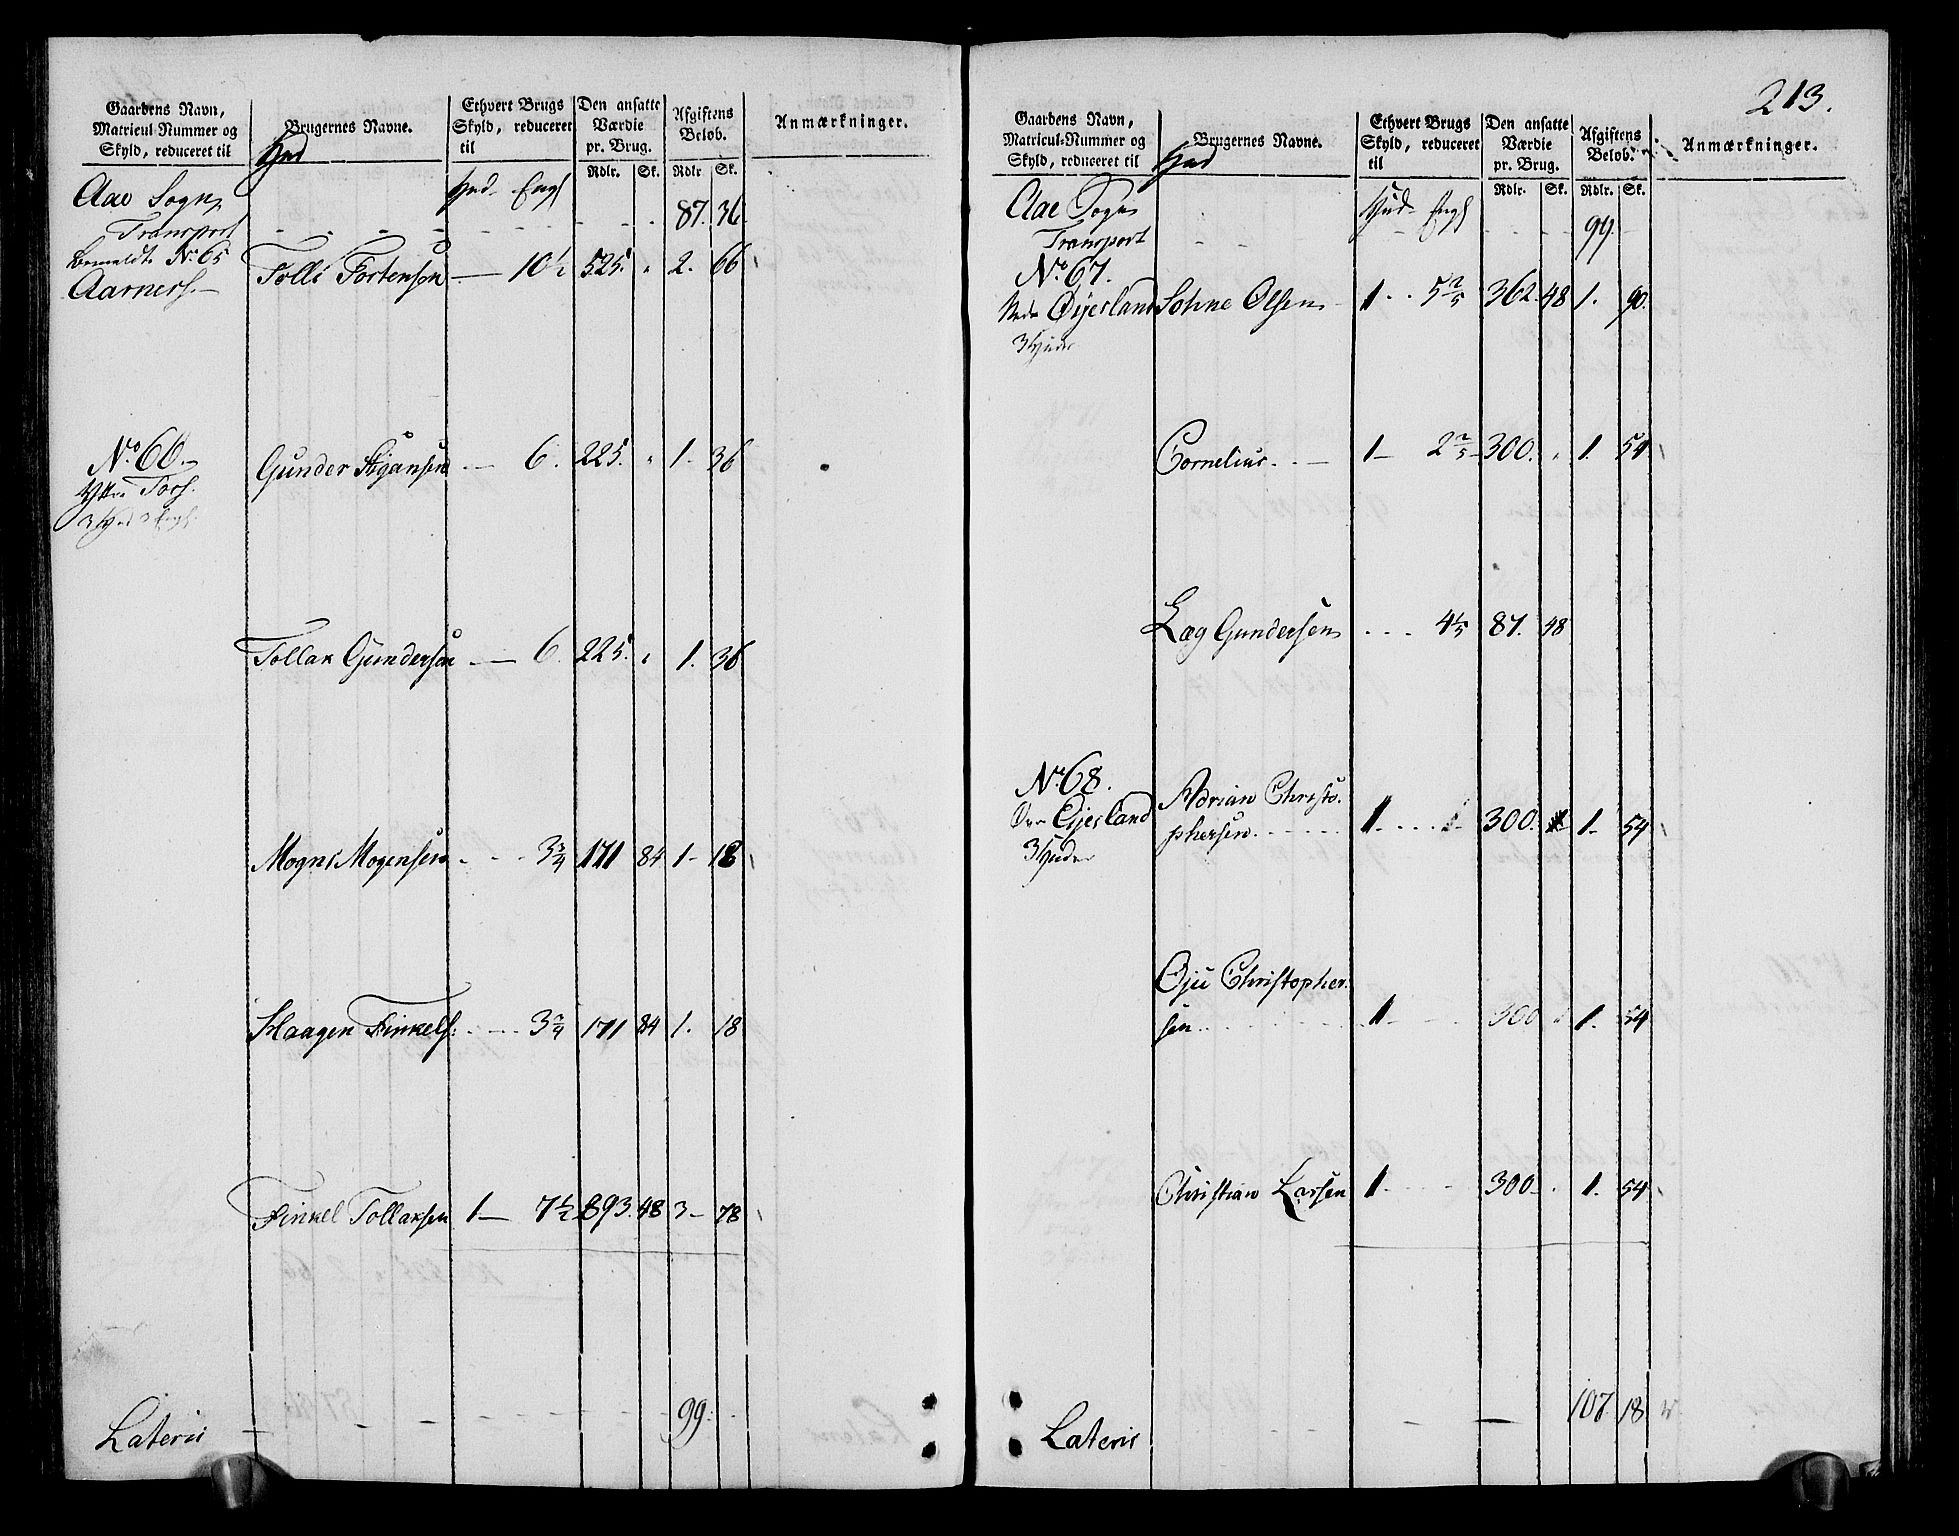 Gaardens Navn,
Matricul-Nummer og
Skyld, reduceret til
Brugernes Navne.
Ethvert Brugs
Skyld, reduceret
til
Den ansatte
Værdie
pr. Brug.
Rdlr. Sk.
Afgiftens
Beløb.
Rdlr Sk.
Anmærkninger.
Hud
Aae Sogn Hud. Engl
Transport 87. 36
bemeldte No 65
Aarnes. Tolle Tortensen 10 1/2 525. 2. 66
No 66. Gunder Stigansen 6. 225. 1. 36
Yttre Tors.
3 Hud 3 Engl.
Tollak Gundersen 6. 225. 1. 36
Mogns Mogensen 3 3/4 171 84 1 18
Haagen Finkels: 3 3/4 171 84 1. 18
Finkel Tollaksen 1 7 1/2 893. 48 3 78
Lateris 99.
213.
Gaardens Navn,
Matricul-Nummer og
Skyld, reduceret til
Brugernes Navne.
Ethvert Brugs
Skyld, reduceret
til
Den ansatte
Værdie
pr. Brug.
Rdlr. Sk.
Afgiftens
Beløb.
Rdlr. Sk.
Anmærkninger.
Hud
Aae Sogn Hud Engl
Transport 99
No 67.
Nedr Øijesland Sohne Olsen 1 5 2/5 362. 48 1. 90.
3 Huder
Cornelius 1 2 2/5 300. 1. 54
Lag Gundersen 4 1/5 87. 48
No 68.
Øvr Eijesland Adrian Christo-
phersen 1 300. 1 54
3 Huder
Øju Christopher-
sen 1 300 1. 54
Christian Larsen 1 300 1. 54
Lateris 107 18